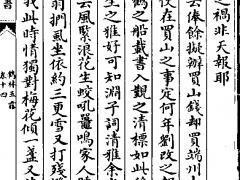 之禍非天報耶
去俸餘擬辦買山錢却買端
使在買山之事定何年劉改之
鶴船載書入觀之清標如此
生之雅好可知淵子詞清雅余
云風緊浪花生蛟吼鼉鳴家人
羽捫虱坐依約三更雪又打殘
我此時情獨對梅花傾一盞又
鶴林玉露
卷十四
書